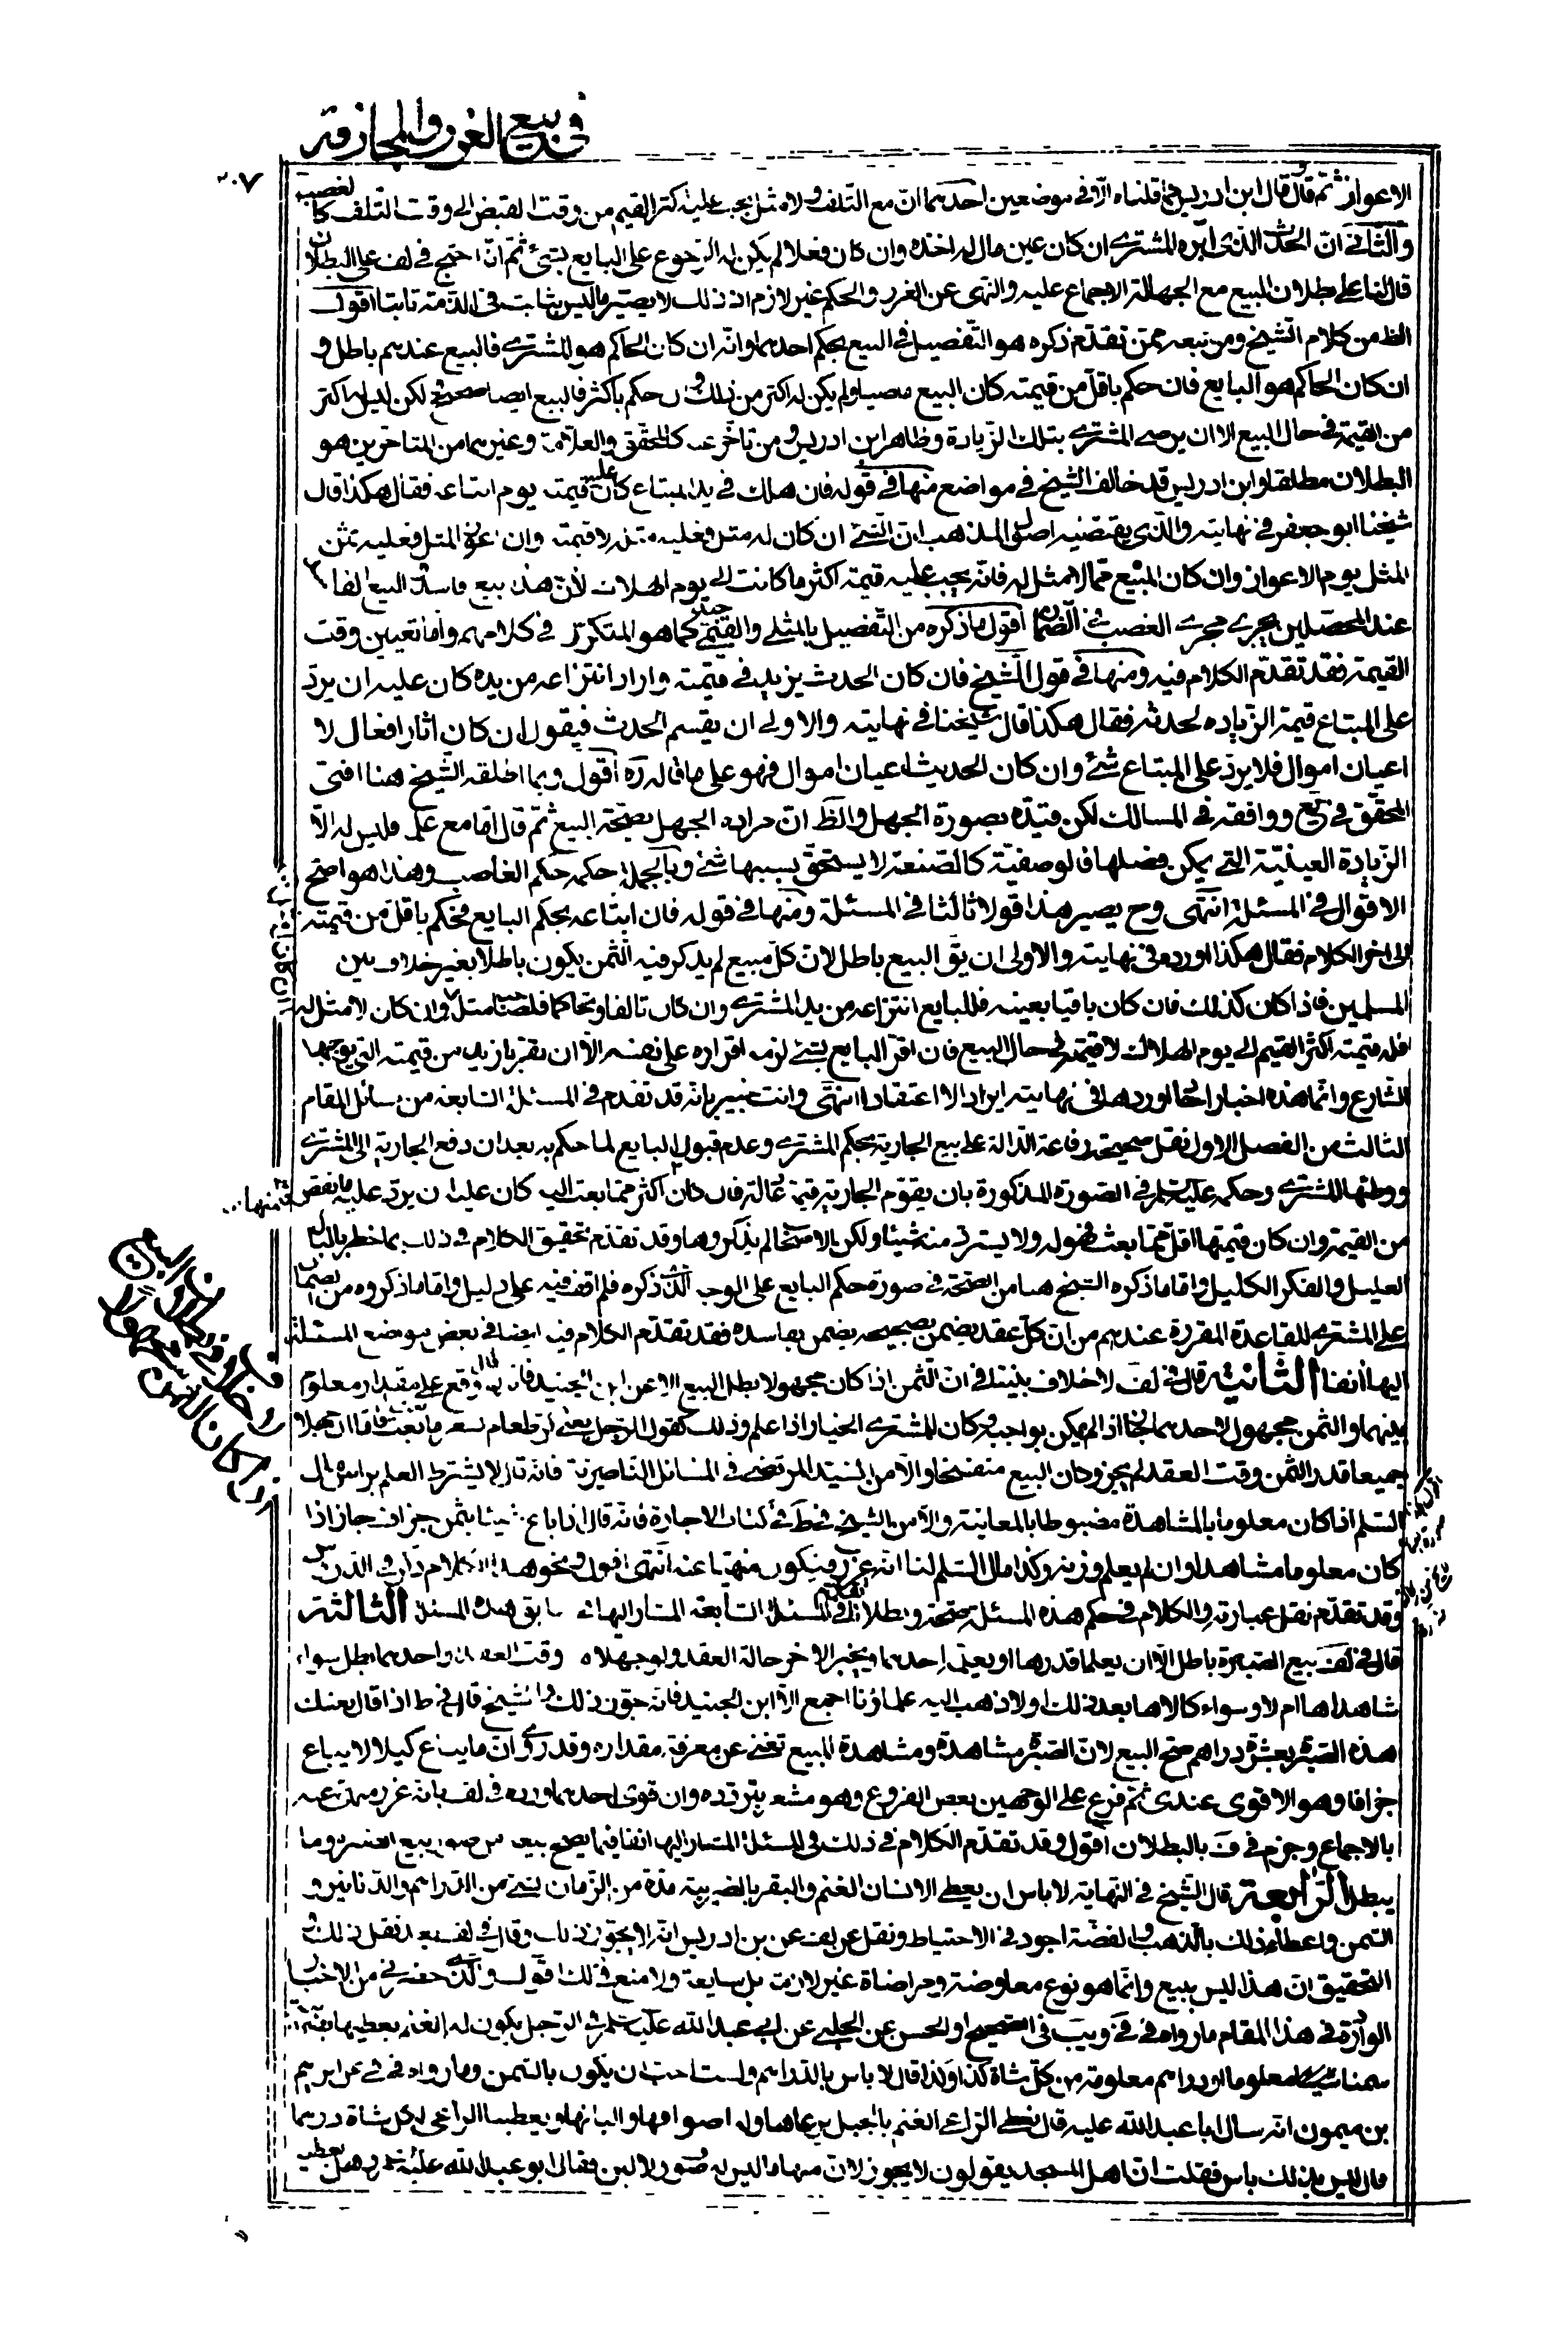 في بيع الغرر والمجازفة
٢٠٧
الاعواز ثم قال وقال ابن ادريس كما قلناه الا في موضعين احدهما ان مع التلف ولا مثل يجب عليه اكثر القيم من وقت القبض الى وقت التلف كالغصب
والثاني ان الحدث الذي اثره المشتري ان كان عين مال له اخذه وان كان فعلا لم يكن له الرجوع على البايع بشئ ثم انه احتج في لف على البطلان
قال لنا على بطلان البيع مع الجهالة الاجماع عليه والنهى عن الغرر والحكم غير لازم اذ ذلك لا يصير ما ليس بثابت في الذمة ثابتا اقول
الظ من كلام الشيخ ومن تبعه ممن تقدم ذكره هو التفصيل في البيع بحكم احدهما وانه ان كان الحاكم هو المشتري فالبيع عندهم باطل و
ان كان الحاكم هو البايع فان حكم باقل من قيمته كان البيع ماضيا ولم يكن له اكثر من ذلك وان حكم باكثر فالبيع ايضا صحيح لكن ليس له اكثر
من القيمة في حال البيع الا ان يرضى المشتري بتلك الزيادة وظاهر ابن ادريس ومن تاخر عنه كالمحقق والعلامة وغيرهما من المتاخرين هو
البطلان مطلقا وابن ادريس قد خالف الشيخ في مواضع منها في قوله فان هلك في يد المبتاع كان عليه قيمته يوم ابتاعه فقال هكذا قال
شيخنا ابو جعفر في نهايته والذي يقتضيه اصول المذهب ان الشئ ان كان له مثل فعليه مثله لا قيمته وان اعوز المثل فعليه ثمن
المثل يوم الاعواز وان كان المبيع مما لا مثل له فانه يجب عليه قيمته اكثر ما كانت الى يوم الهلاك لان هذا بيع فاسد والبيع الفاسد
عند المحصلين يجري مجرى الغصب في الضمان اقول ما ذكره من التفصيل بالمثلي والقيمي جيد كما هو المتكرر في كلامهم واما تعيين وقت
القيمة فقد تقدم الكلام فيه ومنها في قول الشيخ فان كان الحدث يزيد في قيمته واراد انتزاعه من يده كان عليه ان يرد
على المبتاع قيمة الزياده لحدثه فقال هكذا قال شيخنا في نهايته والاولى ان يقسم الحدث فيقول ان كان اثار افعال لا
اعيان اموال فلا يرد على المبتاع شئ وان كان الحدث اعيان اموال فهو على ما قاله ره اقول وبما اطلقه الشيخ هنا افتى
المحقق في يع ووافقه في المسالك لكن قيده بصورة الجهل والظ ان مراده الجهل بصحة البيع ثم قال اما مع علمه فليس له الا
الزيادة العينية التي يمكن فصلها فالوصفية كالصنعة لا يستحق بسببها شئ وبالجملة حكمه حكم الغاصب وهذا هو اصح
الاقوال في المسئلة انتهى وح يصير هذا قولا ثالثا في المسئلة ومنها في قوله فان ابتاعه بحكم البايع فحكم باقل من قيمته
الى اخر الكلام فقال هكذا اورده في نهايته والاولى ان يق البيع باطل لان كل مبيع لم يذكر فيه الثمن يكون باطلا بغير خلاف بين
المسلمين فاذا كان كذلك فان كان باقيا بعينه فللبايع انتزاعه من يد المشتري وان كان تالفا وتحاكما فلصاحبه مثله وان كان لا مثل له
فله قيمته اكثر القيم الى يوم الهلاك لا قيمته في حال البيع فان اقر البايع بشئ لزمه اقراره على نفسه الا ان يقر بازيد من قيمته التي يوجبها
الشارع وانما هذه اخبار احاد اوردها في نهايته ايرادا لا اعتقادا انتهى وانت خبير بانه قد تقدم في المسئلة السابعة من مسائل المقام
الثالث من الفصل الاول نقل صحيحة رفاعة الدالة على بيع الجارية بحكم المشتري وعدم قبول البايع لما حكم به بعد ان دفع الجارية الى المشتري
ووطئها المشتري وحكمه عليه السلام في الصورة المذكورة بان يقوم الجارية قيمة عادلة فان كان اكثر مما بعث اليه كان عليه ان يرد عليه ما نقص
من القيمة وان كان قيمتها اقل مما بعث فهو له ولا يسترد منه شيئا ولكن الاصحاب لم يذكروها وقد تقدم تحقيق الكلام في ذلك بما خطر بالبال
العليل والفكر الكليل واما ما ذكره الشيخ هنا من الصحة في صورة حكم البايع على الوجه الذي ذكره فلم اقف فيه على دليل واما ما ذكروه من الضمان
على المشتري للقاعدة المقررة عندهم من ان كل عقد يضمن بصحيحه يضمن بفاسده فقد تقدم الكلام فيه ايضا في بعض مواضع المسئلة
اليها انفا الثانية قال في لف لا خلاف بيننا في ان الثمن اذا كان مجهولا بطل البيع الا عن ابن الجنيد فانه قال لو وقع على مقدار معلوم
بينهما والثمن مجهول لاحدهما جاز اذا لم يكن بواجب وكان للمشتري الخيار اذا علم وذلك كقول الرجل بعني كر طعام بسعر ما بعت فاما ان جهلا
جميعا قدر الثمن وقت العقد لم يجز وكان البيع منفسخا والا من السيد المرتضى في المسائل الناصرية فانه قال لا يشترط العلم براس مال
السلم اذا كان معلوما بالمشاهدة مضبوطا بالمعاينة والا من الشيخ في ط في كتاب الاجارة فانه قال اذا باع شيئا بثمن جزاف جاز اذا
كان معلوما مشاهدا وان لم يعلم وزنه وكذا مال السلم لنا انه غرر فيكون منهيا عنه انتهى اقول ونحو هذا الكلام
وقد تقدم نقل عبارته والكلام في حكم هذه المسئلة صحة وبطلانا في المسئلة السابعة المشار اليها في سابق هذه المسئلة الثالثة
قال في لف بيع الصبرة باطل الا ان يعلما قدرها او يعلم احدهما ويخبر الاخر حالة العقد ولو جهلاه وقت العقد او احدهما بطل سواء
شاهداها ام لا وسواء كالاها بعد ذلك اولا ذهب اليه علماؤنا اجمع الا ابن الجنيد فانه جوز ذلك والشيخ قال في ط اذا قال بعتك
هذه الصبرة بعشرة دراهم صح البيع لان الصبرة مشاهدة ومشاهدة المبيع تغني عن معرفة مقداره وقد روى ان ما يباع كيلا لا يباع
جزافا وهو الاقوى عندي ثم فرع على الوجهين بعض الفروع وهو مشعر بتردده وان قوى احدهما ورده في لف بانه غرر منهى عنه
بالاجماع وجزم في ف بالبطلان اقول وقد تقدم الكلام في ذلك في المسئلة المشار اليها انفا فيما يصح بيعه من صور بيع الصبرة وما
يبطل الرابعة قال الشيخ في النهاية لا باس ان يعطي الانسان الغنم والبقر بالضريبة مدة من الزمان بشئ من الدراهم والدنانير و
السمن واعطاء ذلك بالذهب والفضة اجود في الاحتياط ونقل في لف عن ابن ادريس انه لا يجوز ذلك وقال في لف بعد نقل ذلك و
التحقيق ان هذا ليس ببيع وانما هو نوع معاوضة ومراضاة غير لازمة بل سايغة ولا منع في ذلك اقول والذي حضرني من الاخبار
الواردة في هذا المقام ما رواه في في ويب في الصحيح او الحسن عن الحلبي عن ابي عبد الله عليه السلام في الرجل يكون له الغنم يعطيها بضريبة
سمنا شيئا معلوما او دراهم معلومة من كل شاة كذا وكذا قال لا باس بالدراهم ولست احب ان يكون بالسمن وما رواه في في عن ابرهيم
بن ميمون انه سال ابا عبد الله عليه قال نعطي الراعي الغنم بالجبل يرعاها وله اصوافها والبانها ويعطينا الراعي لكل شاة درهما
قال ليس بذلك باس فقلت ان اهل المسجد يقولون لا يجوز لان منها ما ليس له صوف ولا لبن فقال ابو عبد الله عليه السلام وهل يطيبه